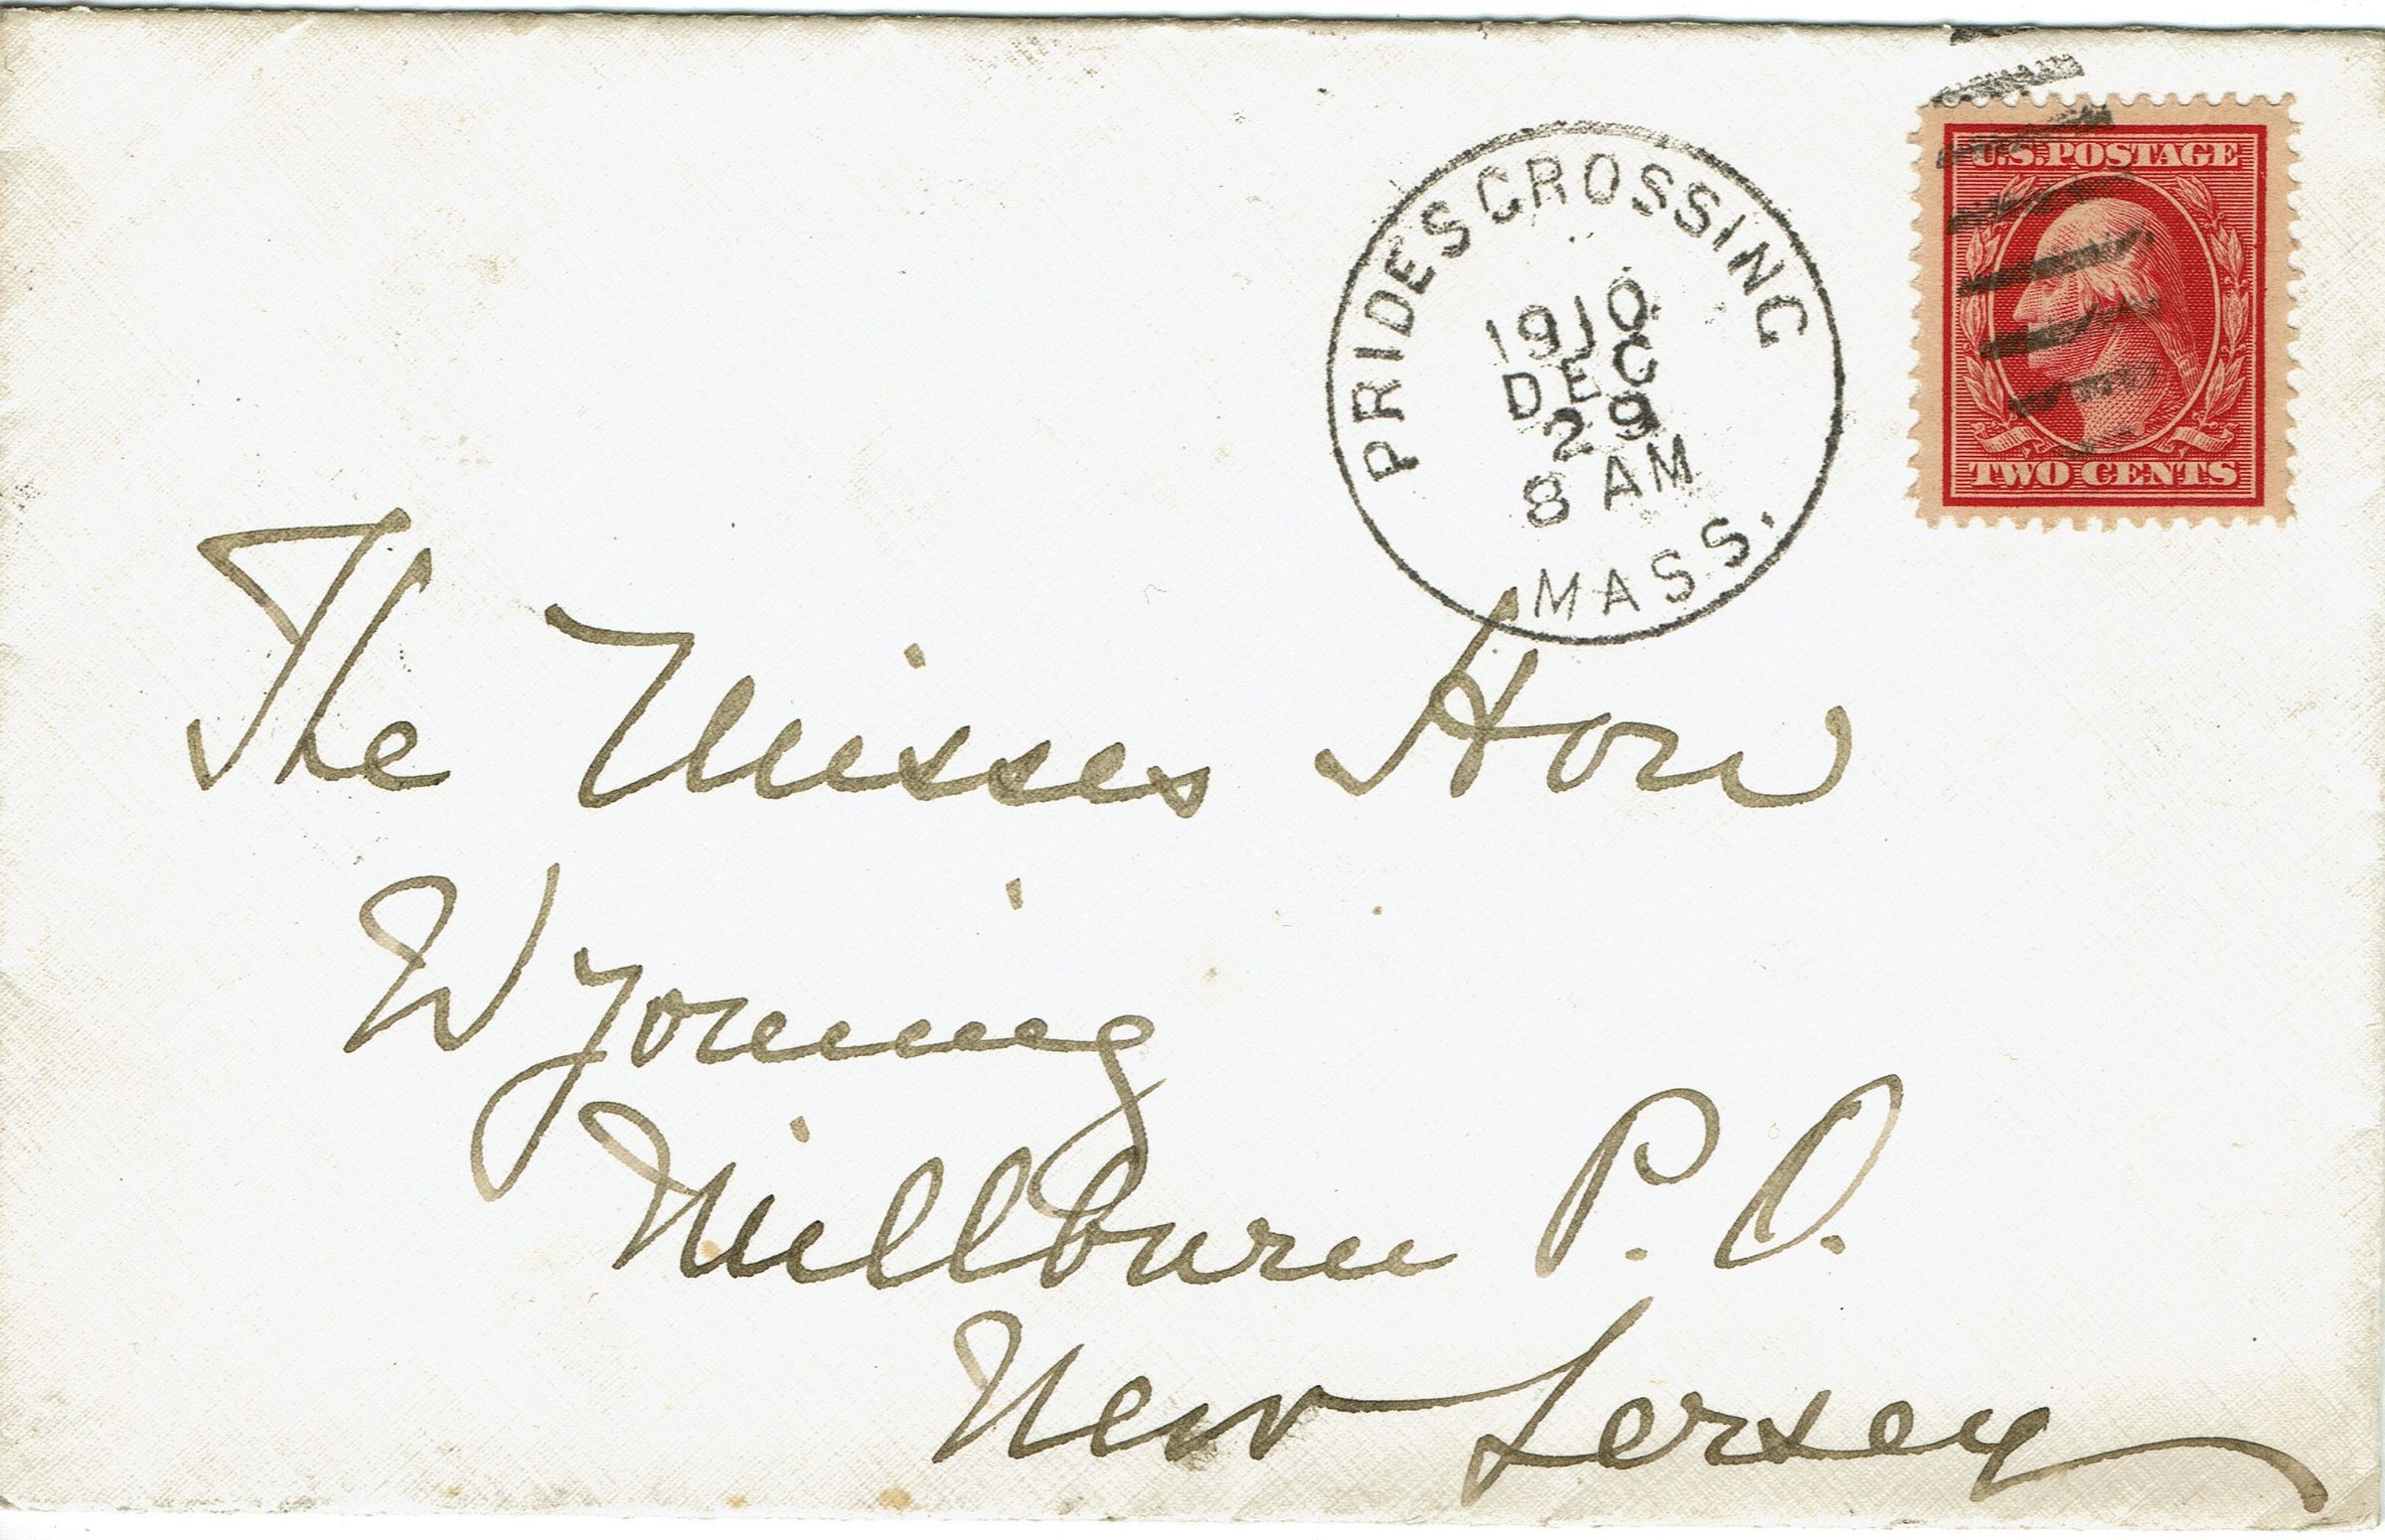 U.S. POSTAGE
TWO CENTS
PRIDES CROSSING
1910
DEC
29
8 AM
MASS.
The Misses How
Wyoming
Millburn P.O.
New Jersey